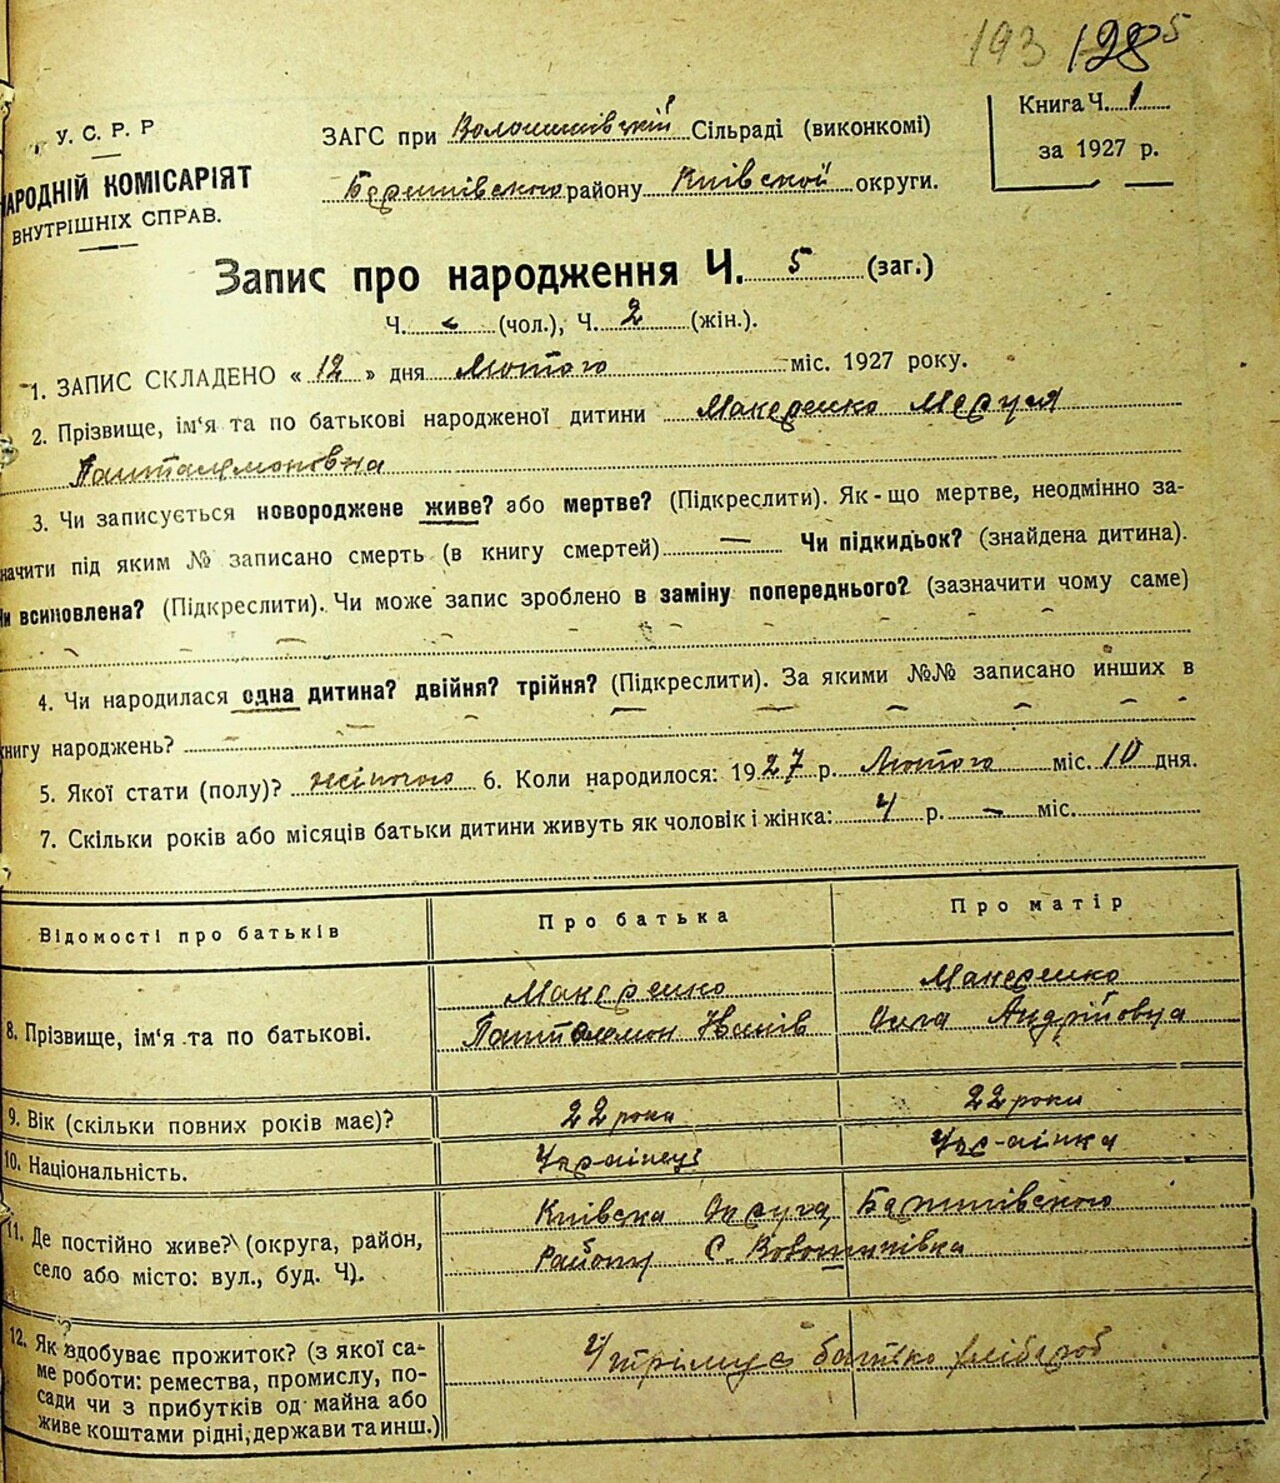 193 128 5
У. С. Р. Р
НАРОДНІЙ КОМІСАРІЯТ
ВНУТРІШНІХ СПРАВ.
ЗАГС при Волошинівській Сільраді (виконкомі)
Баришівського району Київської округи.
Книга Ч. 1
за 1927 р.
Запис про народження Ч. 5 (заг.)
Ч. - (чол.), Ч. 2 (жін.).
1. ЗАПИС СКЛАДЕНО « 12 » дня Лютого міс. 1927 року.
2. Прізвище, ім‘я та по батькові народженої дитини Макаренко Маруся
Панталимоновна
3. Чи записується новороджене живе? або мертве? (Підкреслити). Як-що мертве, неодмінно за-
начити під яким № записано смерть (в книгу смертей) — Чи підкидьок? (знайдена дитина).
Чи всиновлена? (Підкреслити). Чи може запис зроблено в заміну попереднього? (зазначити чому саме)
4. Чи народилася одна дитина? двійня? трійня? (Підкреслити). За якими №№ записано инших в
книгу народжень?
5. Якої стати (полу)? жіночого 6. Коли народилося: 1927 р. Лютого міс. 10 дня.
7. Скільки років або місяців батьки дитини живуть як чоловік і жінка: 4 р. - міс.
Відомості про батьків Про батька Про матір
8. Прізвище, ім‘я та по батькові. Макаренко Панталемон Іванів Макаренко Ольга Андрійовна
9. Вік (скільки повних років має)? 22 роки 22 роки
10. Національність. Українець Українка
11. Де постійно живе? (округа, район, Київска Округа, Баришівского
село або місто: вул., буд. Ч). Району С. Волошинівка
12. Як здобуває прожиток? (з якої са- Утрімує батько хлібороб
ме роботи: ремества, промислу, по-
сади чи з прибутків од майна або
живе коштами рідні, держави та инш.)